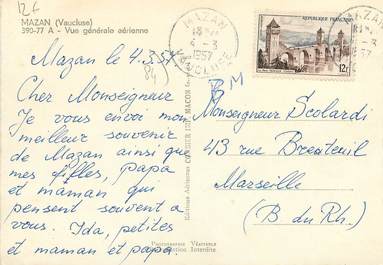 12f
MAZAN (Vaucluse)
390-77 A - Vue générale aérienne
Mazan le 4.3.57
(84)
Cher Monseigneur
Je vous envoi mon
meilleur souvenir
de Mazan ainsi que
mes filles, papa
et maman qui
pensent souvent a
vous. Ida, petites
et maman et papa.
MAZAN
4-3
1957
VAUCLUSE
RÉPUBLIQUE FRANÇAISE
12f
MAZAN
1957
M
Monseigneur Scolardi
43 rue Breteuil
Marseille
(B du Rh.)
Editions Aériennes COMBIER IMP. MACON
Photographie Véritable
Reproduction Interdite